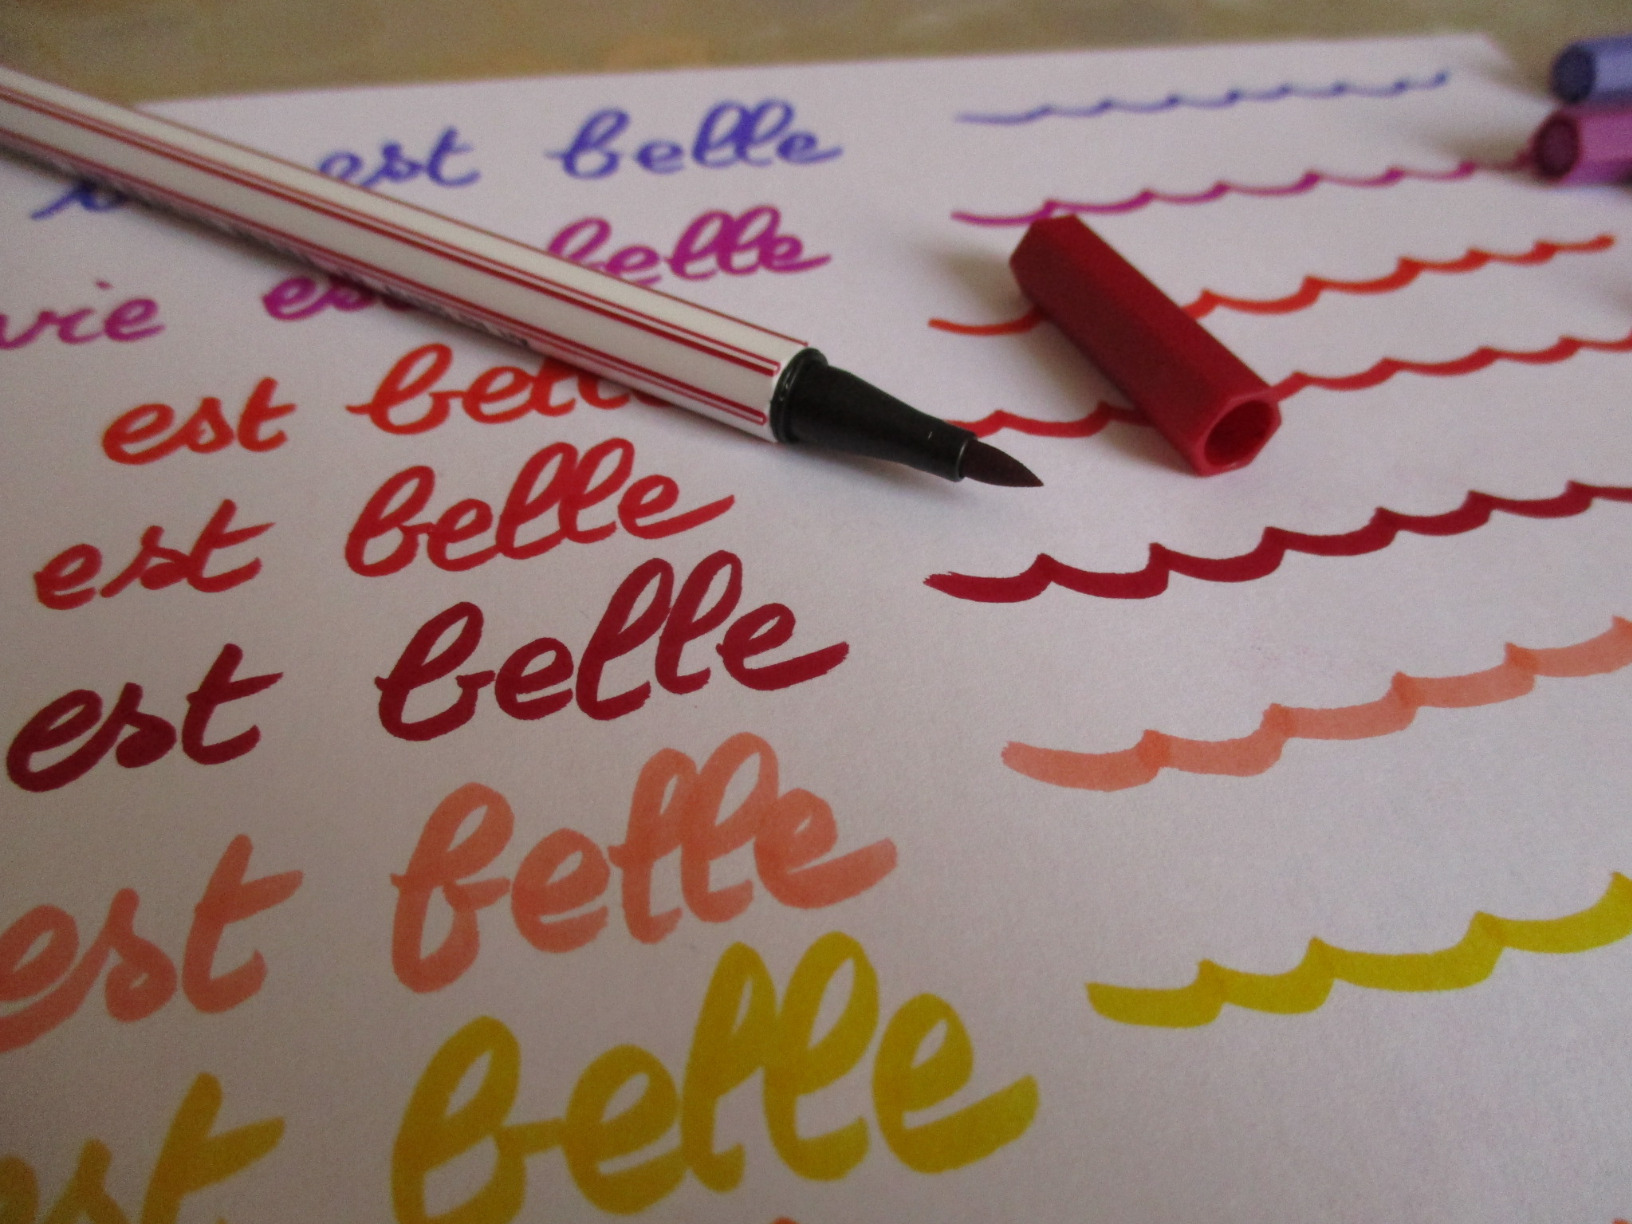 est belle
vie est belle
est belle
est belle
est belle
est belle
est belle